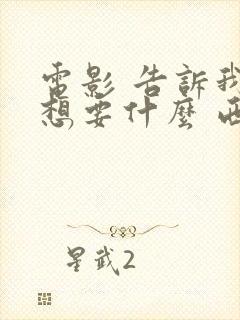 電影 告訴我
想要什麼
星武2